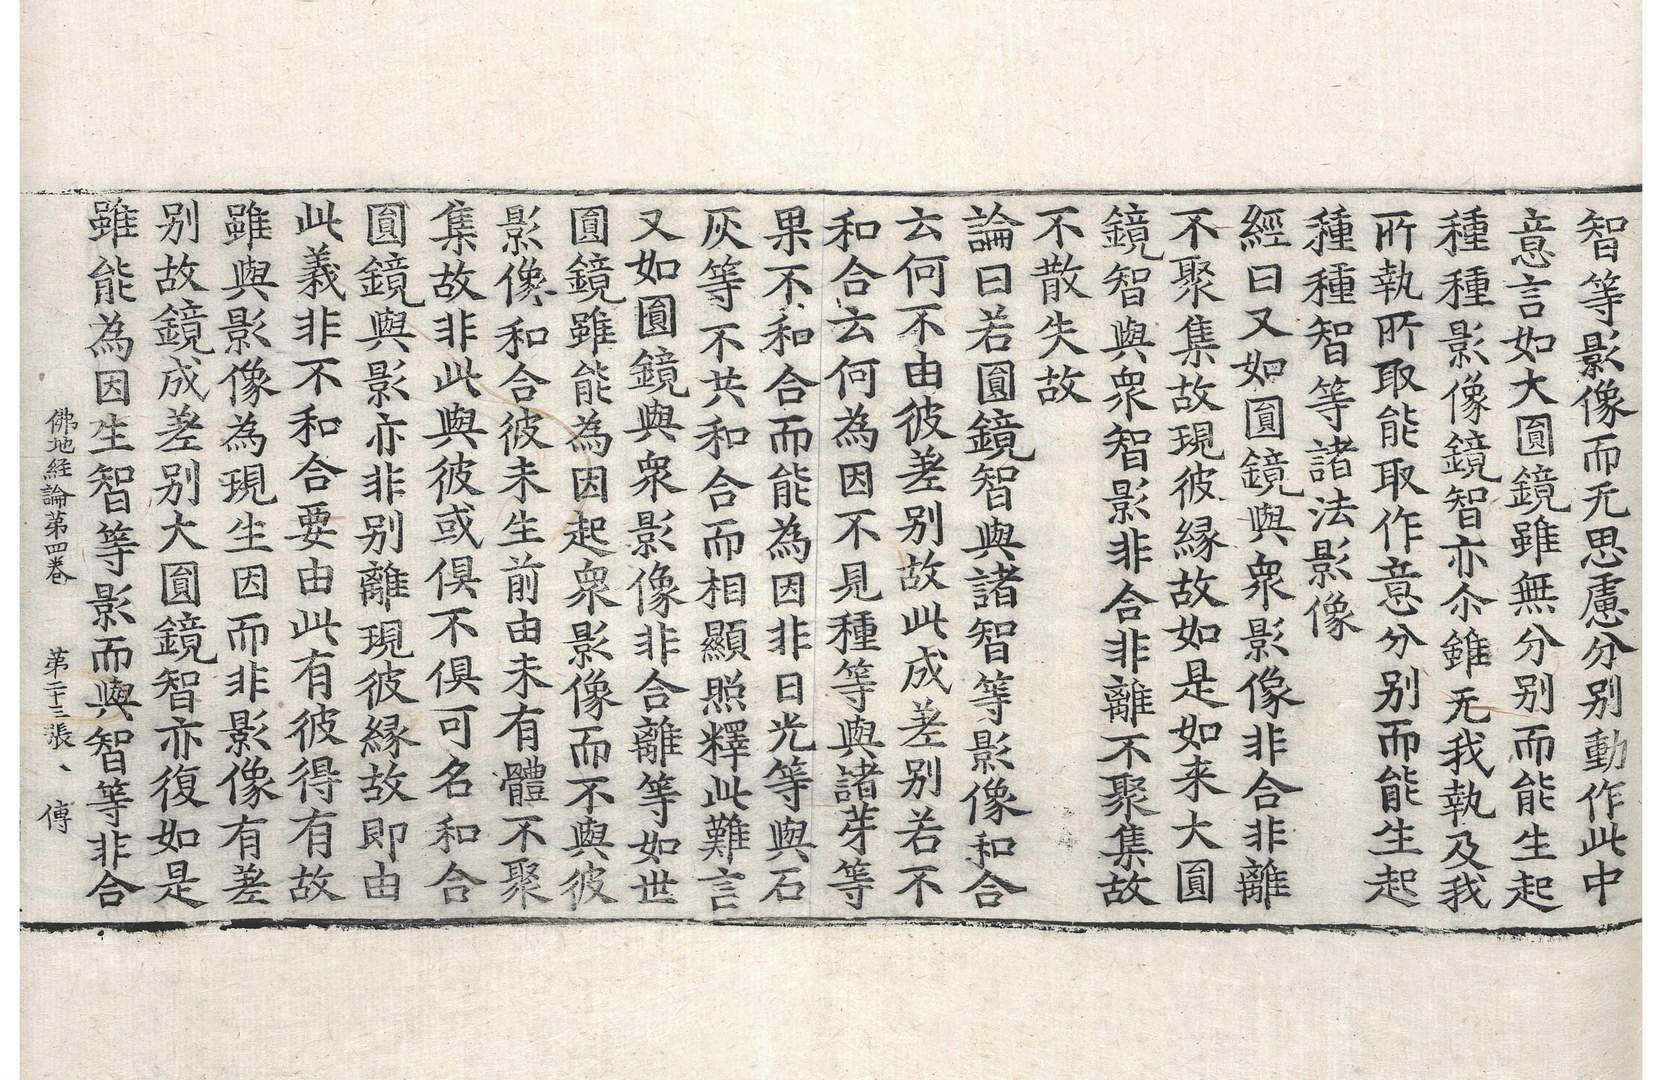 智等影像而无思慮分別動作此中
意言如大圎鏡雖無分別而能生起
種種影像鏡智亦尒雖无我執及我
所執所取能取作意分別而能生起
種種智等諸法影像
經曰又如圎鏡與衆影像非合非離
不聚集故現彼緣故如是如来大圎
鏡智與衆智影非合非離不聚集故
不散失故
論曰若圎鏡智與諸智等影像和合
云何不由彼差別故此成差別若不
和合云何為因不見種等與諸芽等
果不和合而能為因非日光等與石
灰等不共和合而相顯照釋此難言
又如圎鏡與衆影像非合離等如世
圎鏡雖能為因起衆影像而不與彼
影像和合彼未生前由未有體不聚
集故非此與彼或俱不俱可名和合
圎鏡與影亦非別離現彼緣故即由
此義非不和合要由此有彼得有故
雖與影像為現生因而非影像有差
別故鏡成差別大圎鏡智亦復如是
雖能為因生智等影而與智等非合
佛地經論第四卷 第二十三張 傳